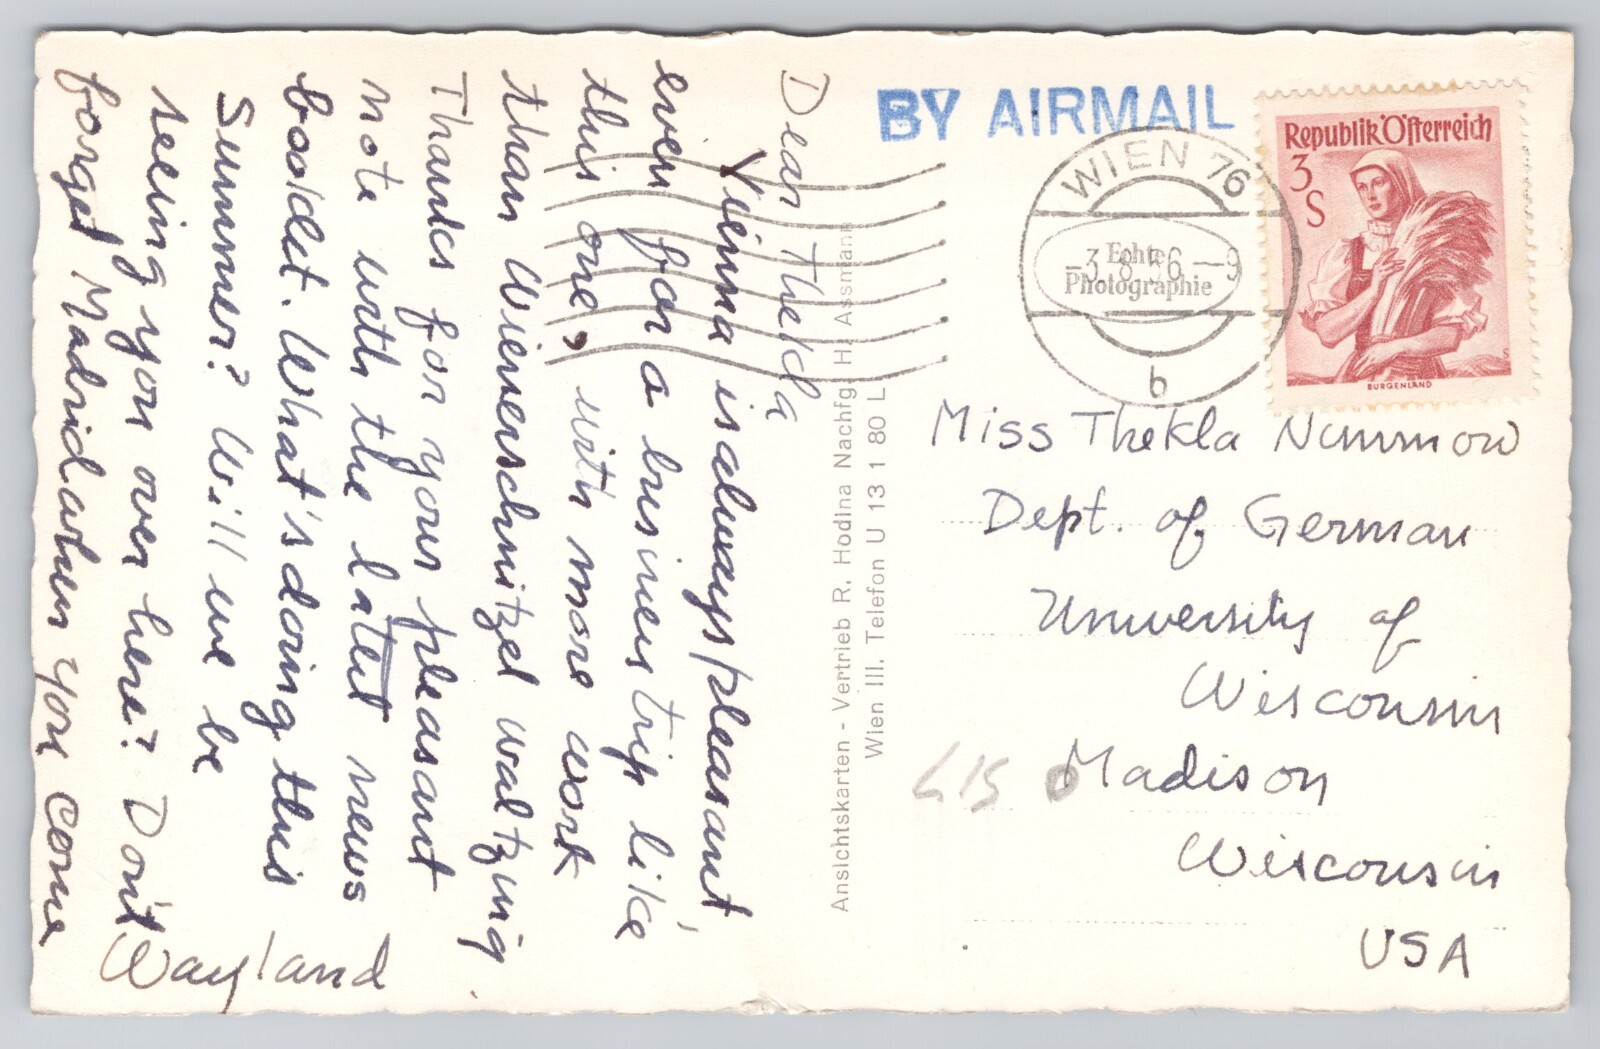 Dear Thekla
Vienna is always pleasant,
even for a business trip like
this one, with more work
than Wienerschnitzel waltzing
Thanks for your pleasant
note with the latest news
booklet. What's doing this
Summer? Will we be
seeing you over here? Don't
forget Madrid when you come
Wayland
Ansichtskarten - Vertrieb R. Hodina Nachfg. H. Assmann
Wien III. Telefon U 13 1 80 L
BY AIRMAIL
WIEN 76
-3. 8. 56 -9
b
Echte
Photographie
Republik Österreich
3
S
BURGENLAND
Miss Thekla
Dept. of German
University of
Wisconsin
Madison
Wisconsin
USA